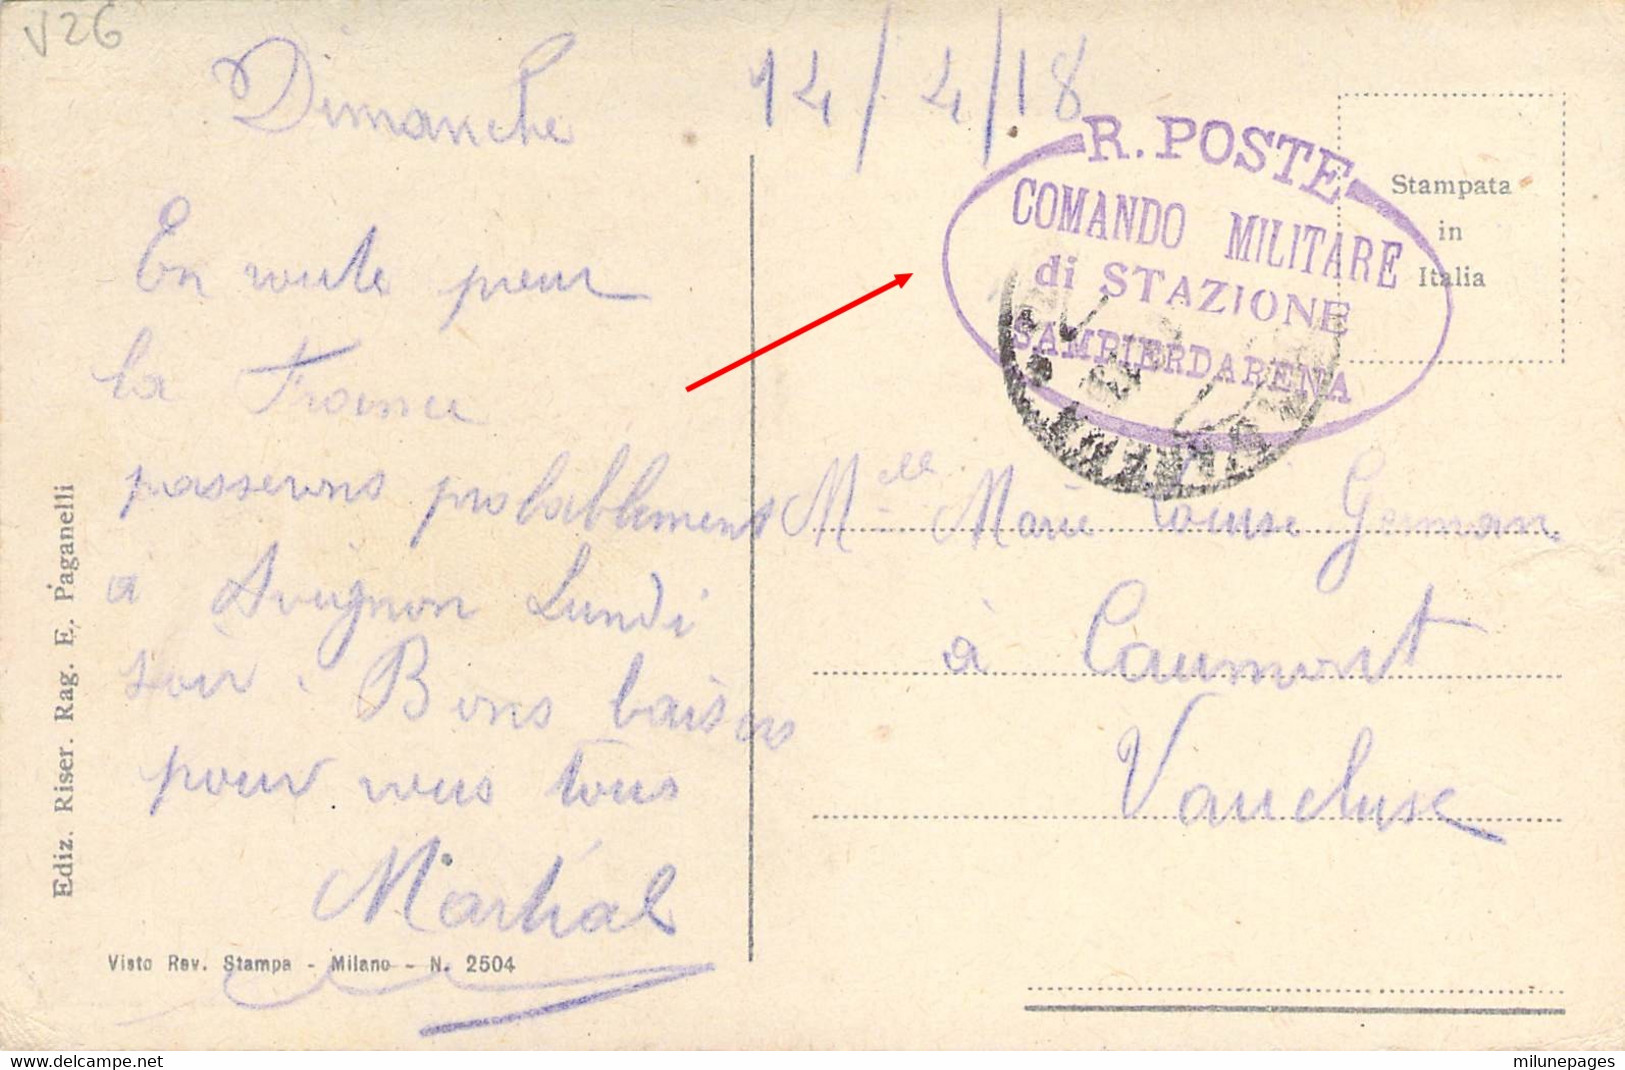 V26
Dimanche 14/4/18
En route pour
la France
passerons probablement
a Avignon Lundi
soir. Bons baisers
pour vous tous
Martial
R. POSTE
COMANDO MILITARE
di STAZIONE
SAMPIERDARENA
Stampata
in
Italia
Melle Marie Louise Germain
à Caumont
Vaucluse
Ediz. Riser. Rag. E. Paganelli
Visto Rev. Stampa - Milano - N. 2504
www.delcampe.net
milunepages